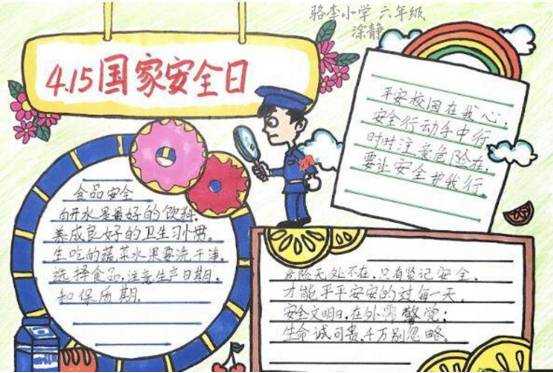 骆李小学 六年级
涂静
4.15国家安全日
平安校园在我心,
安全行动手中行
时时注意危险在,
要让安全帮我行.
食品安全
白开水是最好的饮料.
养成良好的卫生习惯.
生吃的蔬菜水果要洗干净.
选择食品,注意生产日期,
和保质期.
危险无处不在,只有紧记安全,
才能平平安安的过每一天.
安全文明日,在外需警觉;
生命诚可贵,千万别忽略.